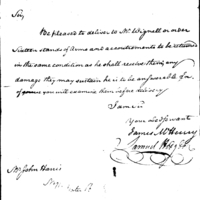 Sir,
Be pleased to deliver to Mr. Wignell or order
Sixteen stands of Arms and accoutrements to be returned
in the same condition as he shall receive them, any
damage they may sustain he is to be answerable for
you will examine them before delivery
I am Sir
your obed servant
James McHenry
Samuel Hodgdon
Mr. John Harris